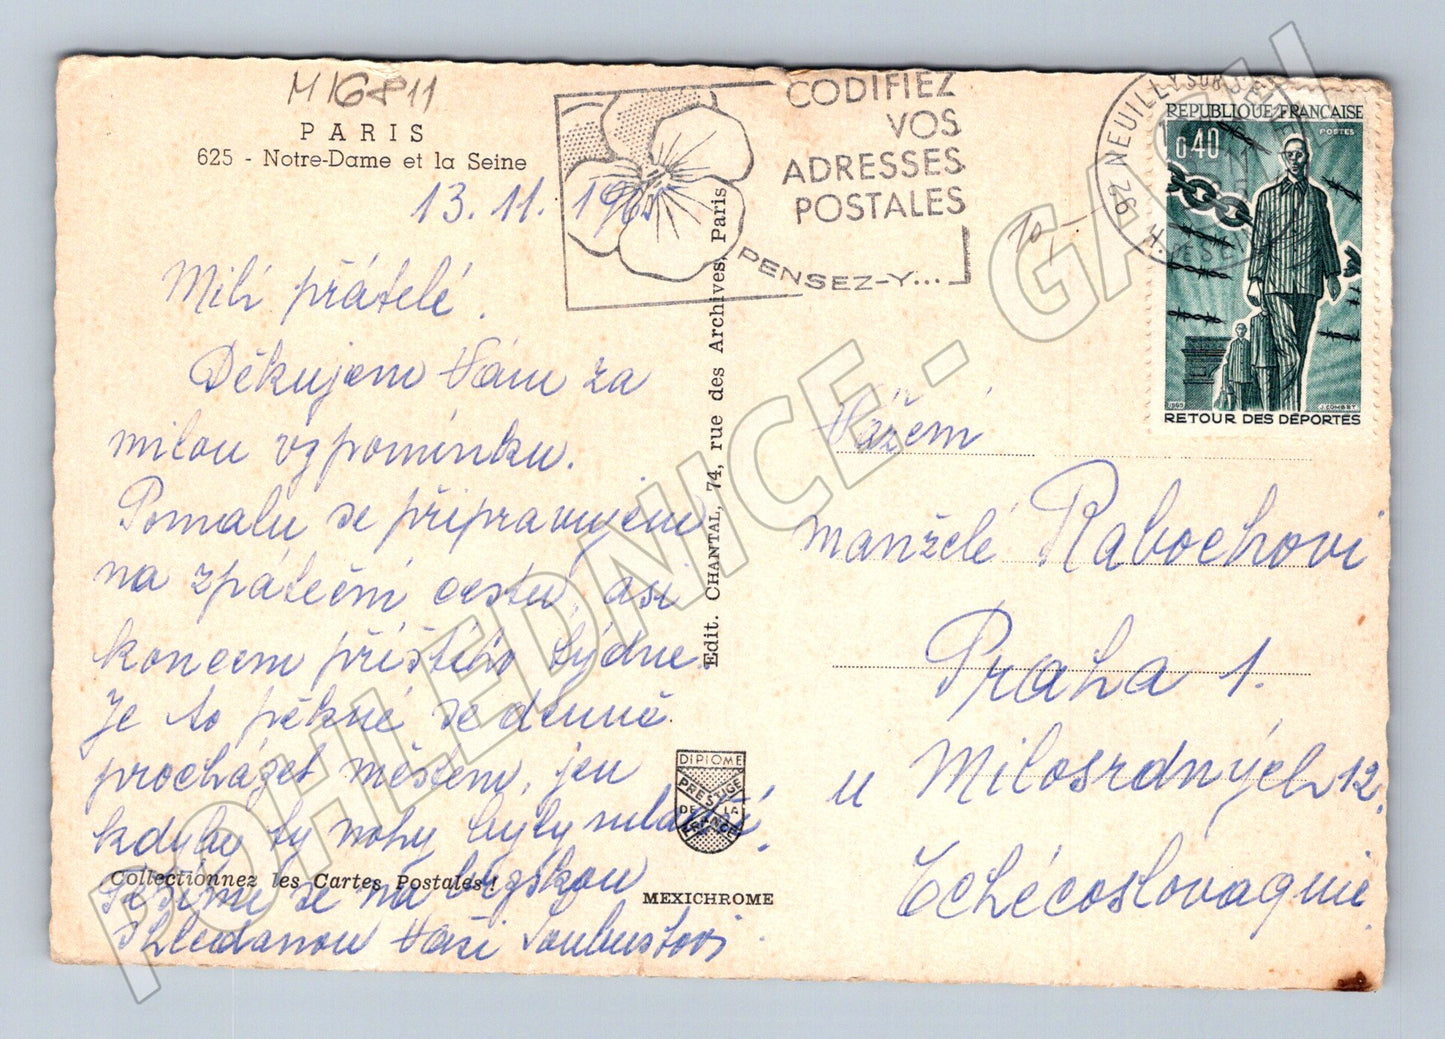 M16811
PARIS
625 - Notre-Dame et la Seine
13. 11. 1965
Milí přátelé.
Děkujem Vám za
milou vzpomínku.
Pomalu se připravujem
na zpáteční cestu, asi
koncem příštího týdne.
Je to pěkné se denně
procházet městem, jen
kdyby ty nohy byly mladší.
Těšíme se na brzskou
shledanou Vaši
Collectionnez les Cartes Postales!
Edit. CHANTAL, 74, rue des Archives, Paris
DIPLOME
PRESTIGE
DE LA
FRANCE
MEXICHROME
CODIFIEZ
VOS
ADRESSES
POSTALES
PENSEZ-Y...
10,-
92 NEUILLY SUR SEINE
REPUBLIQUE FRANÇAISE
POSTES
0,40
1965
J. COMBET
RETOUR DES DÉPORTÉS
Vážení
manželé Rabochovi
Praha 1.
u Milosrdných 12.
Tchécoslovaquie.
POHLEDNICE - GASH